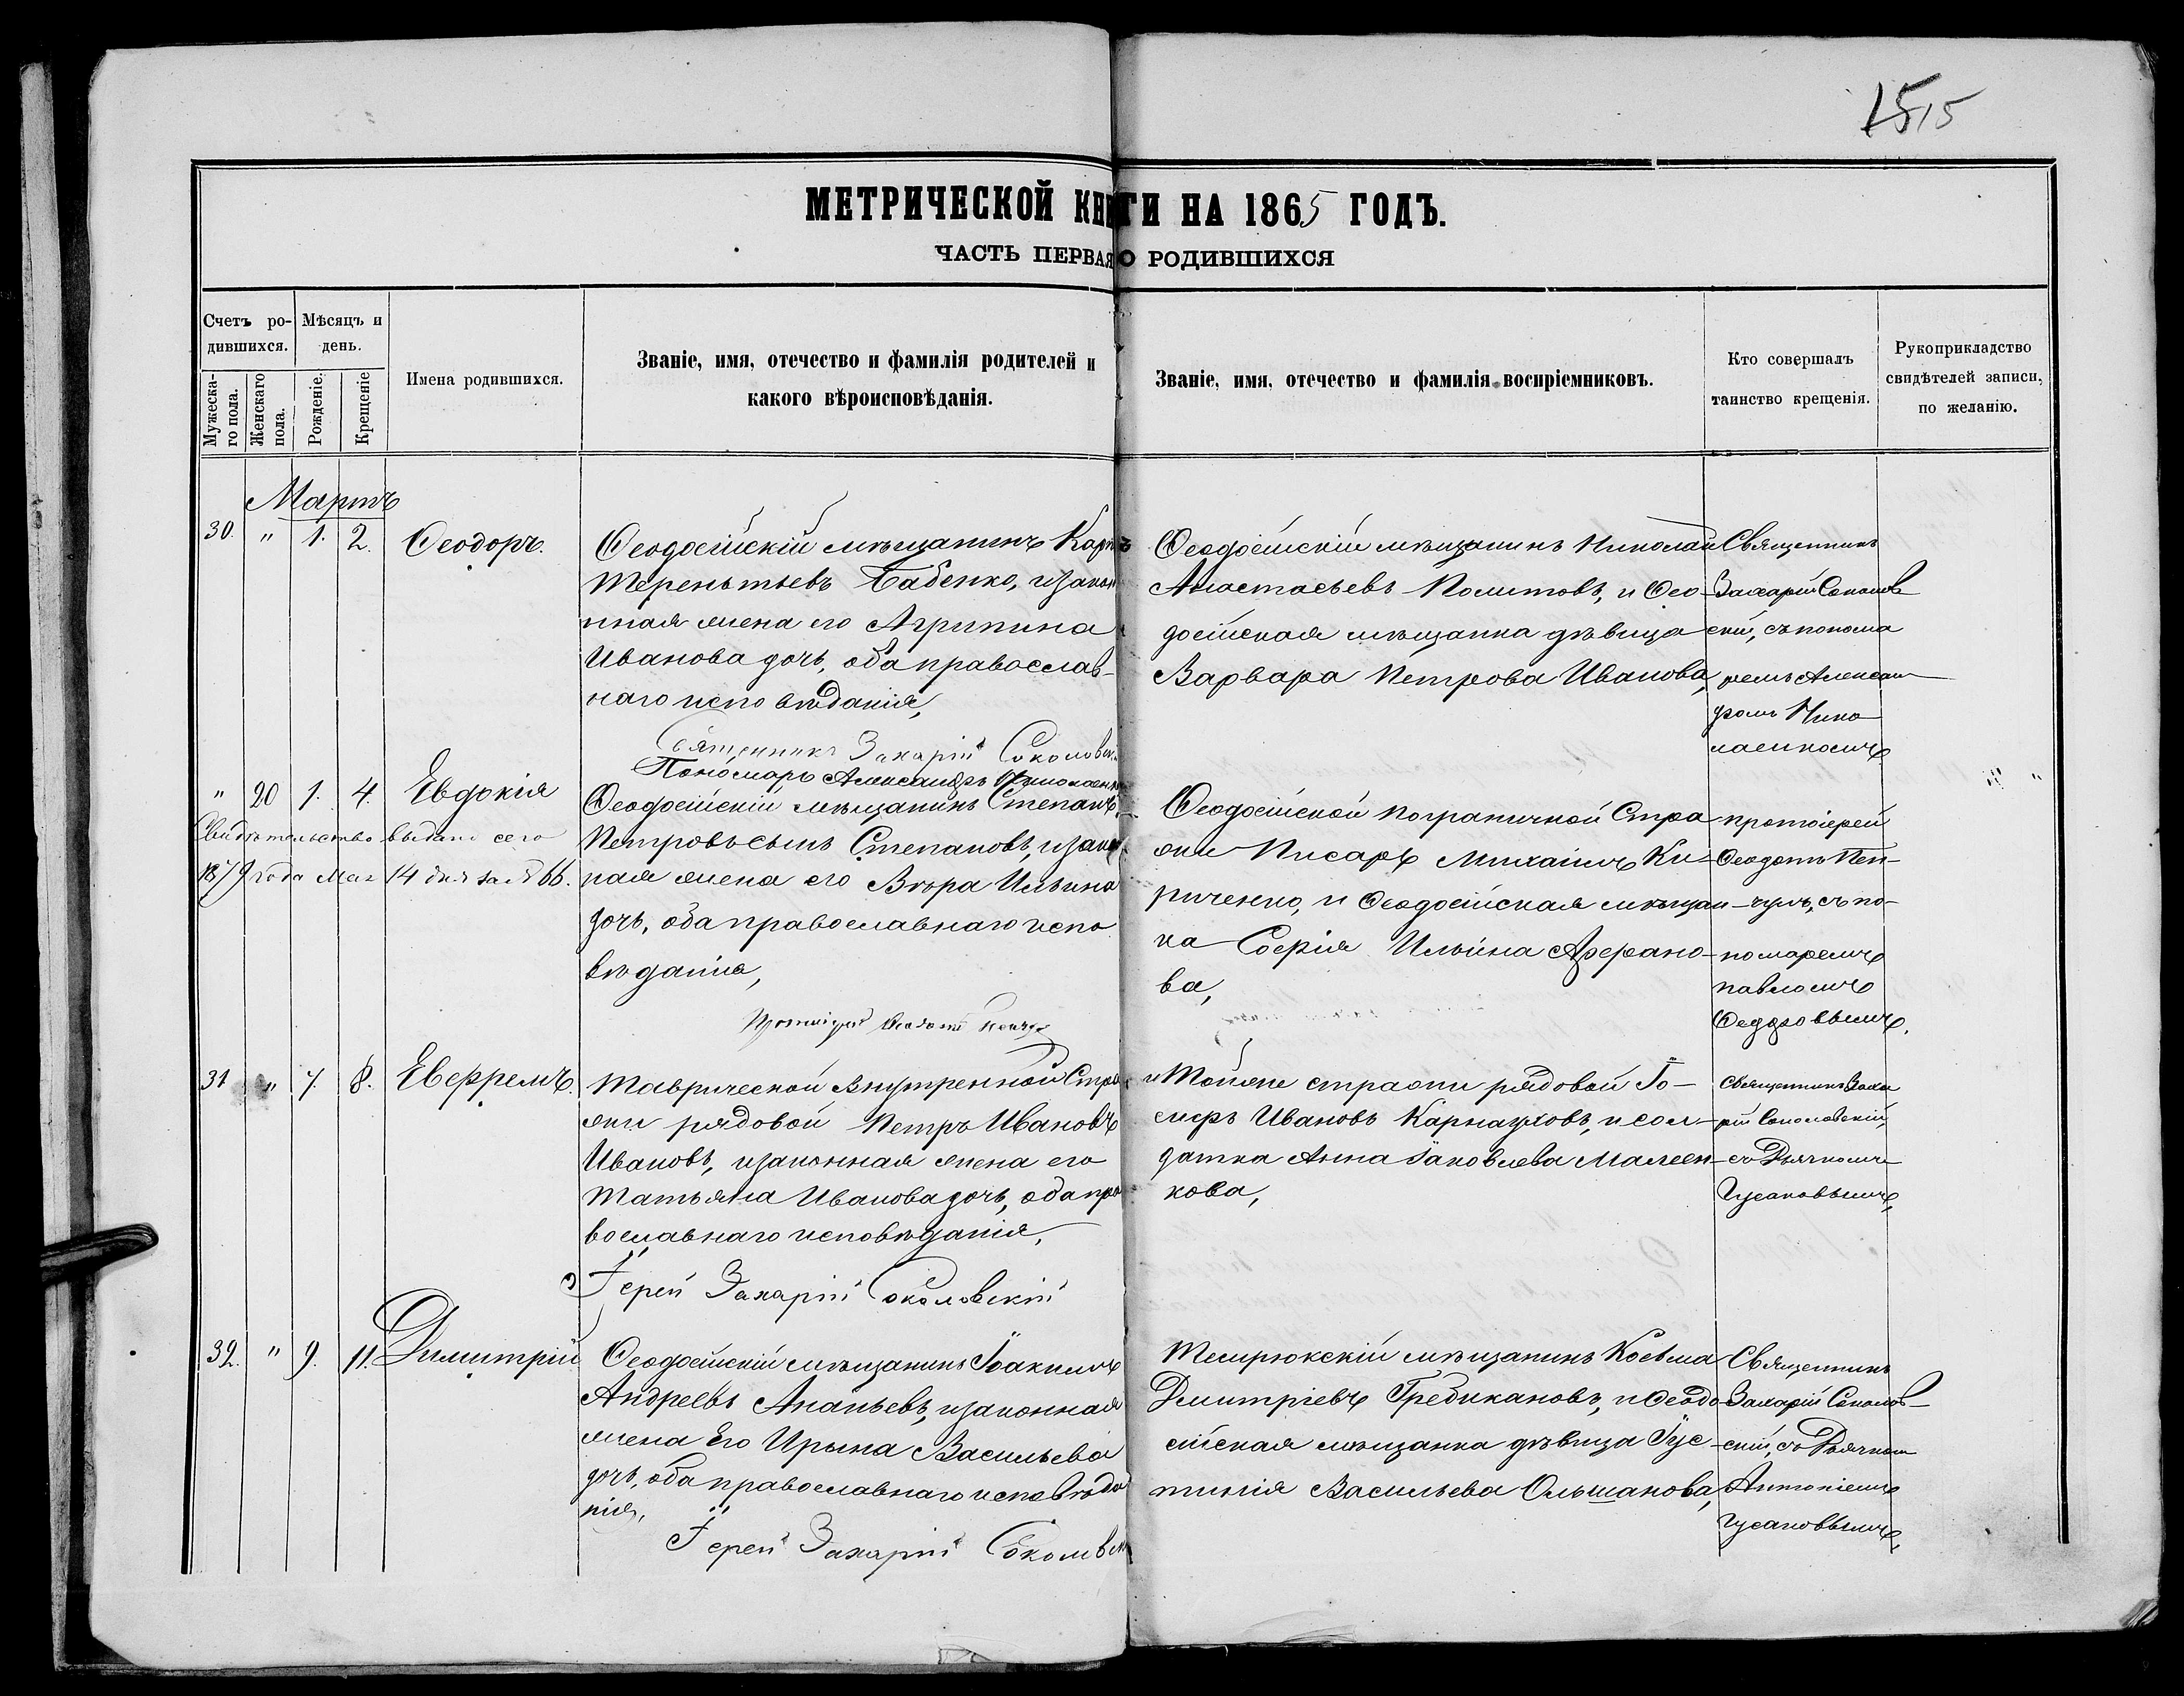 1515
МЕТРИЧЕСКОЙ КНИГИ НА 1865 ГОДЪ.
ЧАСТЬ ПЕРВАЯ О РОДИВШИХСЯ
Счетъ ро-
дившихся.
Мѣсяцъ и
день.
Мужеска-
го пола.
Женскаго
пола.
Рожденіе.
Крещеніе
Имена родившихся.
Званіе, имя, отечество и фамилія родителей и
какого вѣроисповѣданія.
Званіе, имя, отечество и фамилія воспріемниковъ.
Кто совершалъ
таинство крещенія.
Рукоприкладство
свидѣтелей записи,
по желанію.
Мартъ
30. " 1. 2. Ѳеодоръ.
Ѳеодосійскій мѣщанинъ
Терентьевъ Бабенко, и закон
ная жена его Агрипина
Иванова дочь, оба православ-
наго исповѣданія,
Священникъ Захарій Соколовск
Пономарь Александръ
Ѳеодосійскій мѣщанинъ Николай
Анастасьевъ Политовъ, и Ѳео-
досійская мѣщанка дѣвица
Варвара Петрова Иванова,
Священникъ
Захарій Соколов
скій, съ понома
ремъ Алексан
дромъ Нико
лаенкомъ
" 20 1. 4. Евдокія
Свидѣтельство выдано сего
1879 года Мая 14 дня за № 66.
Ѳеодосійскій мѣщанинъ Степанъ
Петровъ сынъ Степановъ, и закон
ная жена его Вѣра Ильина
дочь, оба православнаго испо
вѣданія,
Протоіерей Ѳеодотъ
Ѳеодосійской пограничной Стра
жи Писарь Михаилъ Ки-
риченко, и Ѳеодосійская мѣщан-
ка Софія Ильина
ва,
протоіерей
Ѳеодотъ
съ по-
номаремъ
павломъ
Ѳедоровымъ,
31 " 7. 8. Евфремъ.
Таврической Внутренной Стра
жи рядовой Петръ Ивановъ
Ивановъ, и законная жена его
Татьяна Иванова дочь, оба пра
вославнаго исповѣданія,
Іерей Захарій Соколовскій
Тойже стражи рядовой Іо-
сифъ Ивановъ Карнауховъ, и сол-
датка Анна Іаковлева
кова,
священникъ Заха
рій Соколовскій,
съ Дьячкомъ
Гусаковымъ,
32. " 9. 11. Димитрій
Ѳеодосійскій мѣщанинъ Іоакимъ
Андреевъ Ананьевъ, и законная
жена Его Ирына Васильева
дочь, оба православнаго исповѣда
нія,
Іерей Захарій Соколовск
Темрюкскій мѣщанинъ Косьма
Дмитріевъ Гребикановъ, и Ѳеодо
сійская мѣщанка дѣвица Іус-
тинія Васильева Ольшанова,
Священникъ
Захарій Соколов-
скій, съ Дьячком
Антоніемъ
Гусаковымъ,